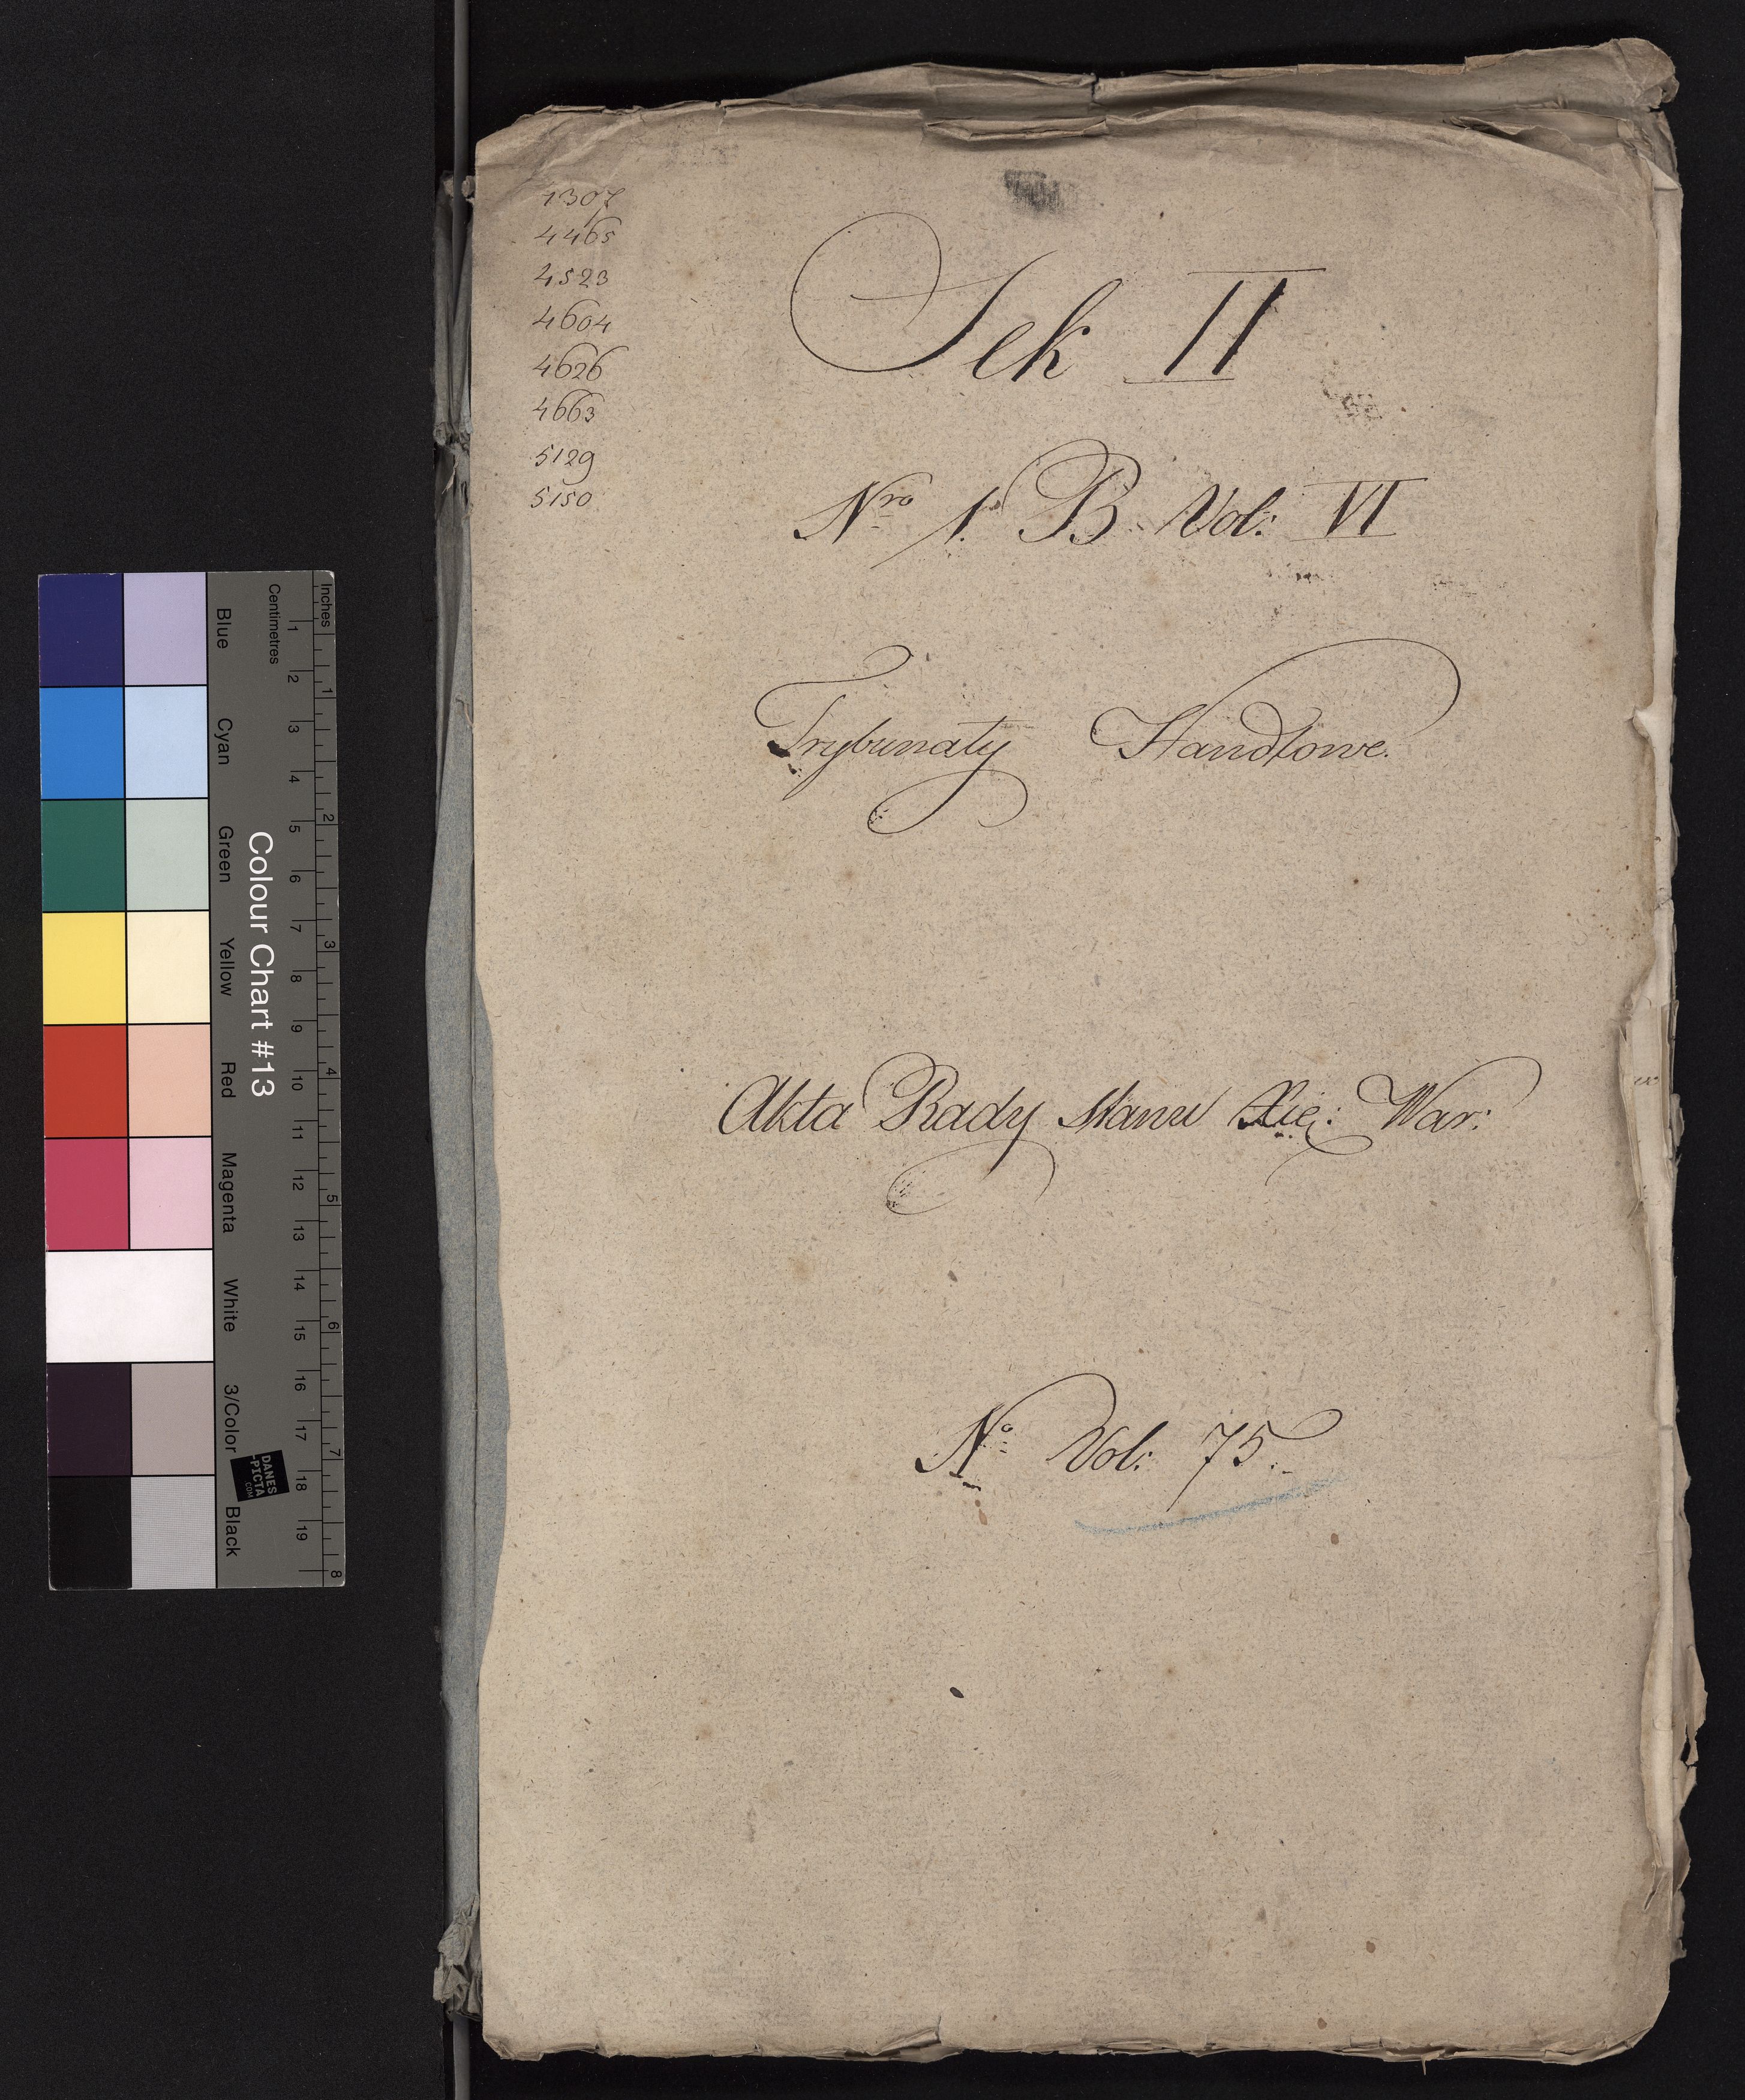 1307
4465
4523
4604
4626
4663
5129
5150
Sek II
Nro 1. B. Vol: VI
Trybunały Handlowe.
Akta Rady Stanu Xię: War:
No Vol: 75.
Colour Chart #13
Blue Cyan Green Yellow Red Magenta White 3/Color Black
Centimetres 1 2 3 4 5 6 7 8 9 10 11 12 13 14 15 16 17 18 19
Inches 1 2 3 4 5 6 7 8
DANES
-PICTA
.COM